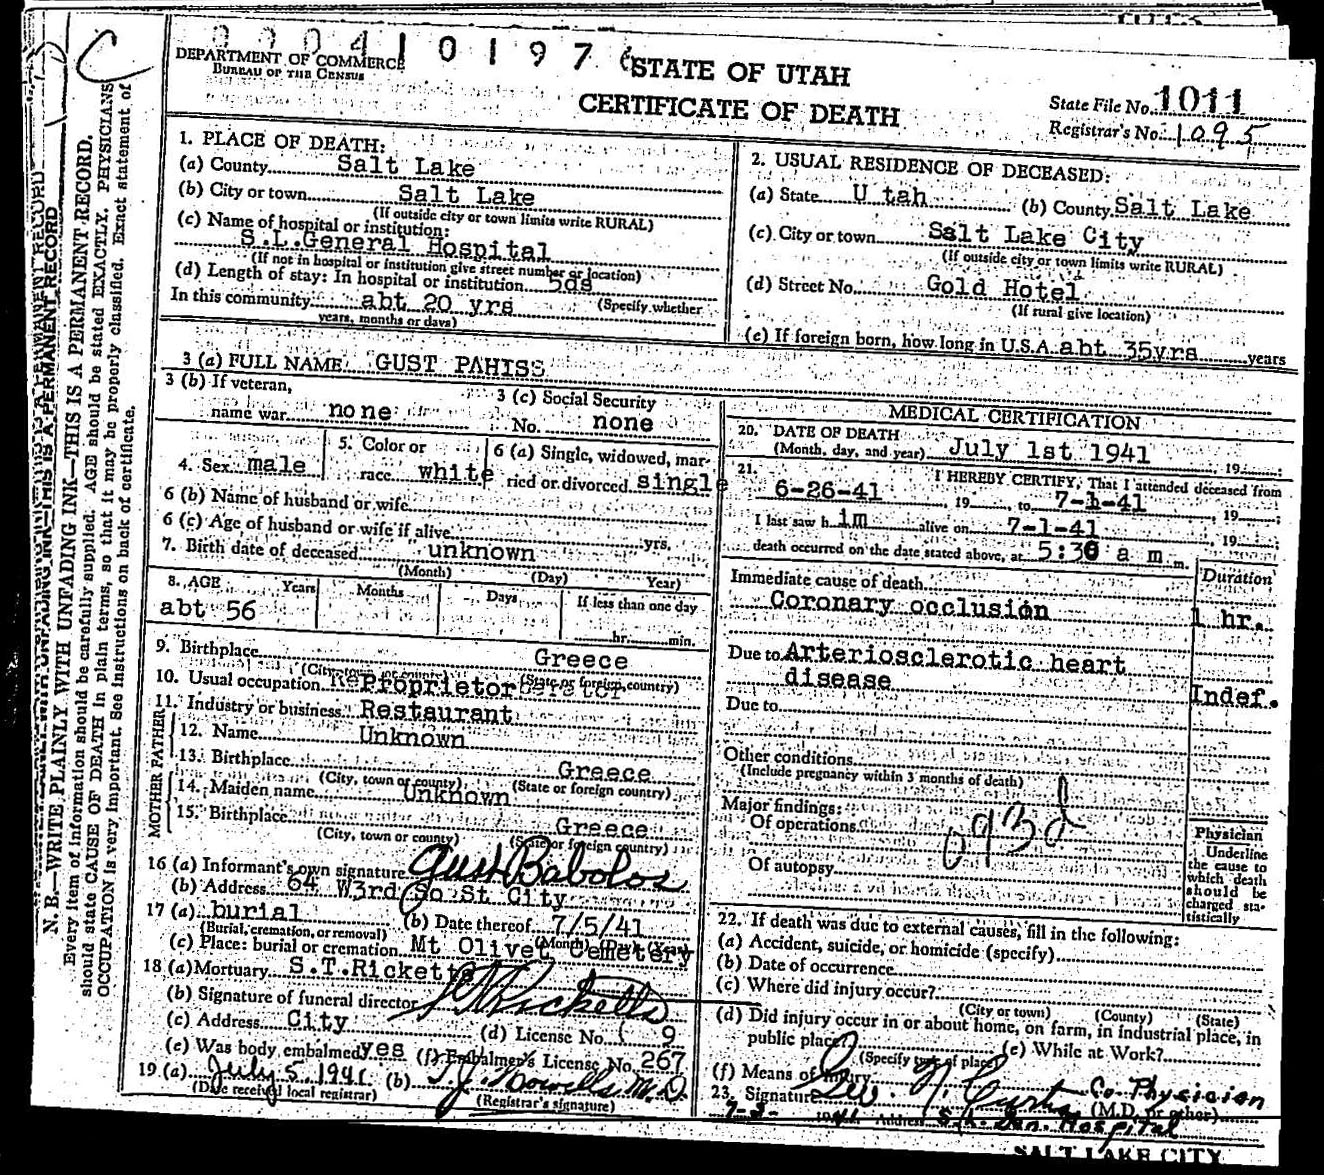 C
DEPARTMENT OF COMMERCE
BUREAU OF THE CENSUS
10197
STATE OF UTAH
CERTIFICATE OF DEATH
State File No. 1011
Registrar's No. 1095
N. B.—WRITE PLAINLY WITH UNFADING INK—THIS IS A PERMANENT RECORD.
Every item of information should be carefully supplied. AGE should be stated EXACTLY. PHYSICIANS
should state CAUSE OF DEATH in plain terms, so that it may be properly classified. Exact statement of
OCCUPATION is very important. See instructions on back of certificate.
1. PLACE OF DEATH:
(a) County Salt Lake
(b) City or town Salt Lake
(If outside city or town limits write RURAL)
(c) Name of hospital or institution:
S.L.General Hospital
(If not in hospital or institution give street number or location)
(d) Length of stay: In hospital or institution 5ds
In this community abt 20 yrs (Specify whether
years, months or days)
2. USUAL RESIDENCE OF DECEASED:
(a) State U tah (b) County Salt Lake
(c) City or town Salt Lake City
(If outside city or town limits write RURAL)
(d) Street No. Gold Hotel
(If rural give location)
(e) If foreign born, how long in U.S.A. abt 35yrs years
3 (a) FULL NAME GUST PAHISS
3 (b) If veteran,
name war none
3 (c) Social Security
No. none
4. Sex male
5. Color or
race white
6 (a) Single, widowed, mar-
ried or divorced single
6 (b) Name of husband or wife
6 (c) Age of husband or wife if alive yrs.
7. Birth date of deceased unknown
(Month) (Day) Year)
8. AGE Years Months Days If less than one day
abt 56 hr. min.
9. Birthplace Greece
(City, town or county) (State or foreign country)
10. Usual occupation Proprietor
11. Industry or business Restaurant
FATHER
12. Name Unknown
13. Birthplace Greece
(City, town or county) (State or foreign country)
MOTHER
14. Maiden name Unknown
15. Birthplace Greece
(City, town or county) (State or foreign country)
16 (a) Informant's own signature Gust Babolos
(b) Address 64 W3rd So St City
17 (a) burial (b) Date thereof 7/5/41
(Burial, cremation, or removal) (Month) (Day) (Year)
(c) Place: burial or cremation Mt Olivet Cemetery
18 (a) Mortuary S.T.Ricketts
(b) Signature of funeral director S T Ricketts
(c) Address City (d) License No. 9
(e) Was body embalmed yes (f) Embalmer's License No. 267
19 (a) July 5, 1941 (b) T. J. Howells M.D.
(Date received local registrar) (Registrar's signature)
MEDICAL CERTIFICATION
20. DATE OF DEATH
(Month, day, and year) July 1st 1941, 19
21. I HEREBY CERTIFY, That I attended deceased from
6-26-41 19 to 7-1-41, 19
I last saw h im alive on 7-1-41, 19
death occurred on the date stated above, at 5:30 a m m.
Duration
Immediate cause of death
Coronary occlusion 1 hr.
Due to Arteriosclerotic heart
disease Indef.
Due to
Other conditions
(Include pregnancy within 3 months of death)
Major findings:
Of operations
093d
Of autopsy
Physician
Underline
the cause to
which death
should be
charged sta-
tistically
22. If death was due to external causes, fill in the following:
(a) Accident, suicide, or homicide (specify)
(b) Date of occurrence
(c) Where did injury occur?
(City or town) (County) (State)
(d) Did injury occur in or about home, on farm, in industrial place, in
public place?
(Specify type of place) (e) While at Work?
(f) Means of injury
23. Signature Geo. N. Curtis Co. Physician
(M.D. or other)
7-3- 1941 Address S.L. Gen. Hospital
SALT LAKE CITY